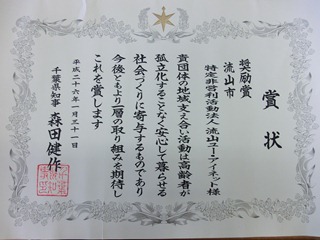 賞状
奨励賞
流山市
特定非営利活動法人 流山ユー・アイネット様
貴団体の地域支え合い活動は高齢者が
孤立化することなく安心して暮らせる
社会づくりに寄与するものであり
今後ともより一層の取り組みを期待し
これを賞します
平成二十六年一月三十一日
千葉県知事 森田健作